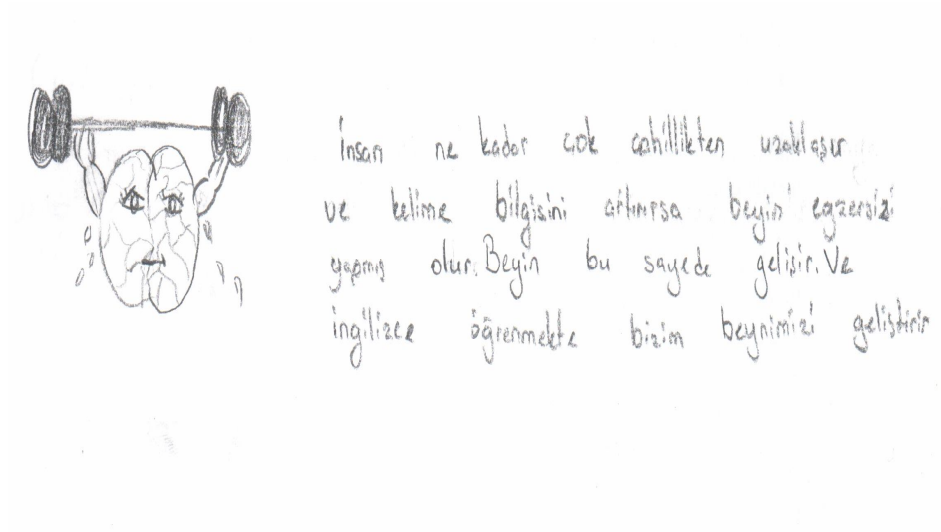 İnsan ne kadar çok cahillikten uzaklaşır
ve kelime bilgisini artırırsa beyin egzersizi
yapmış olur. Beyin bu sayede gelişir. Ve
ingilizce öğrenmekte bizim beynimizi geliştirir